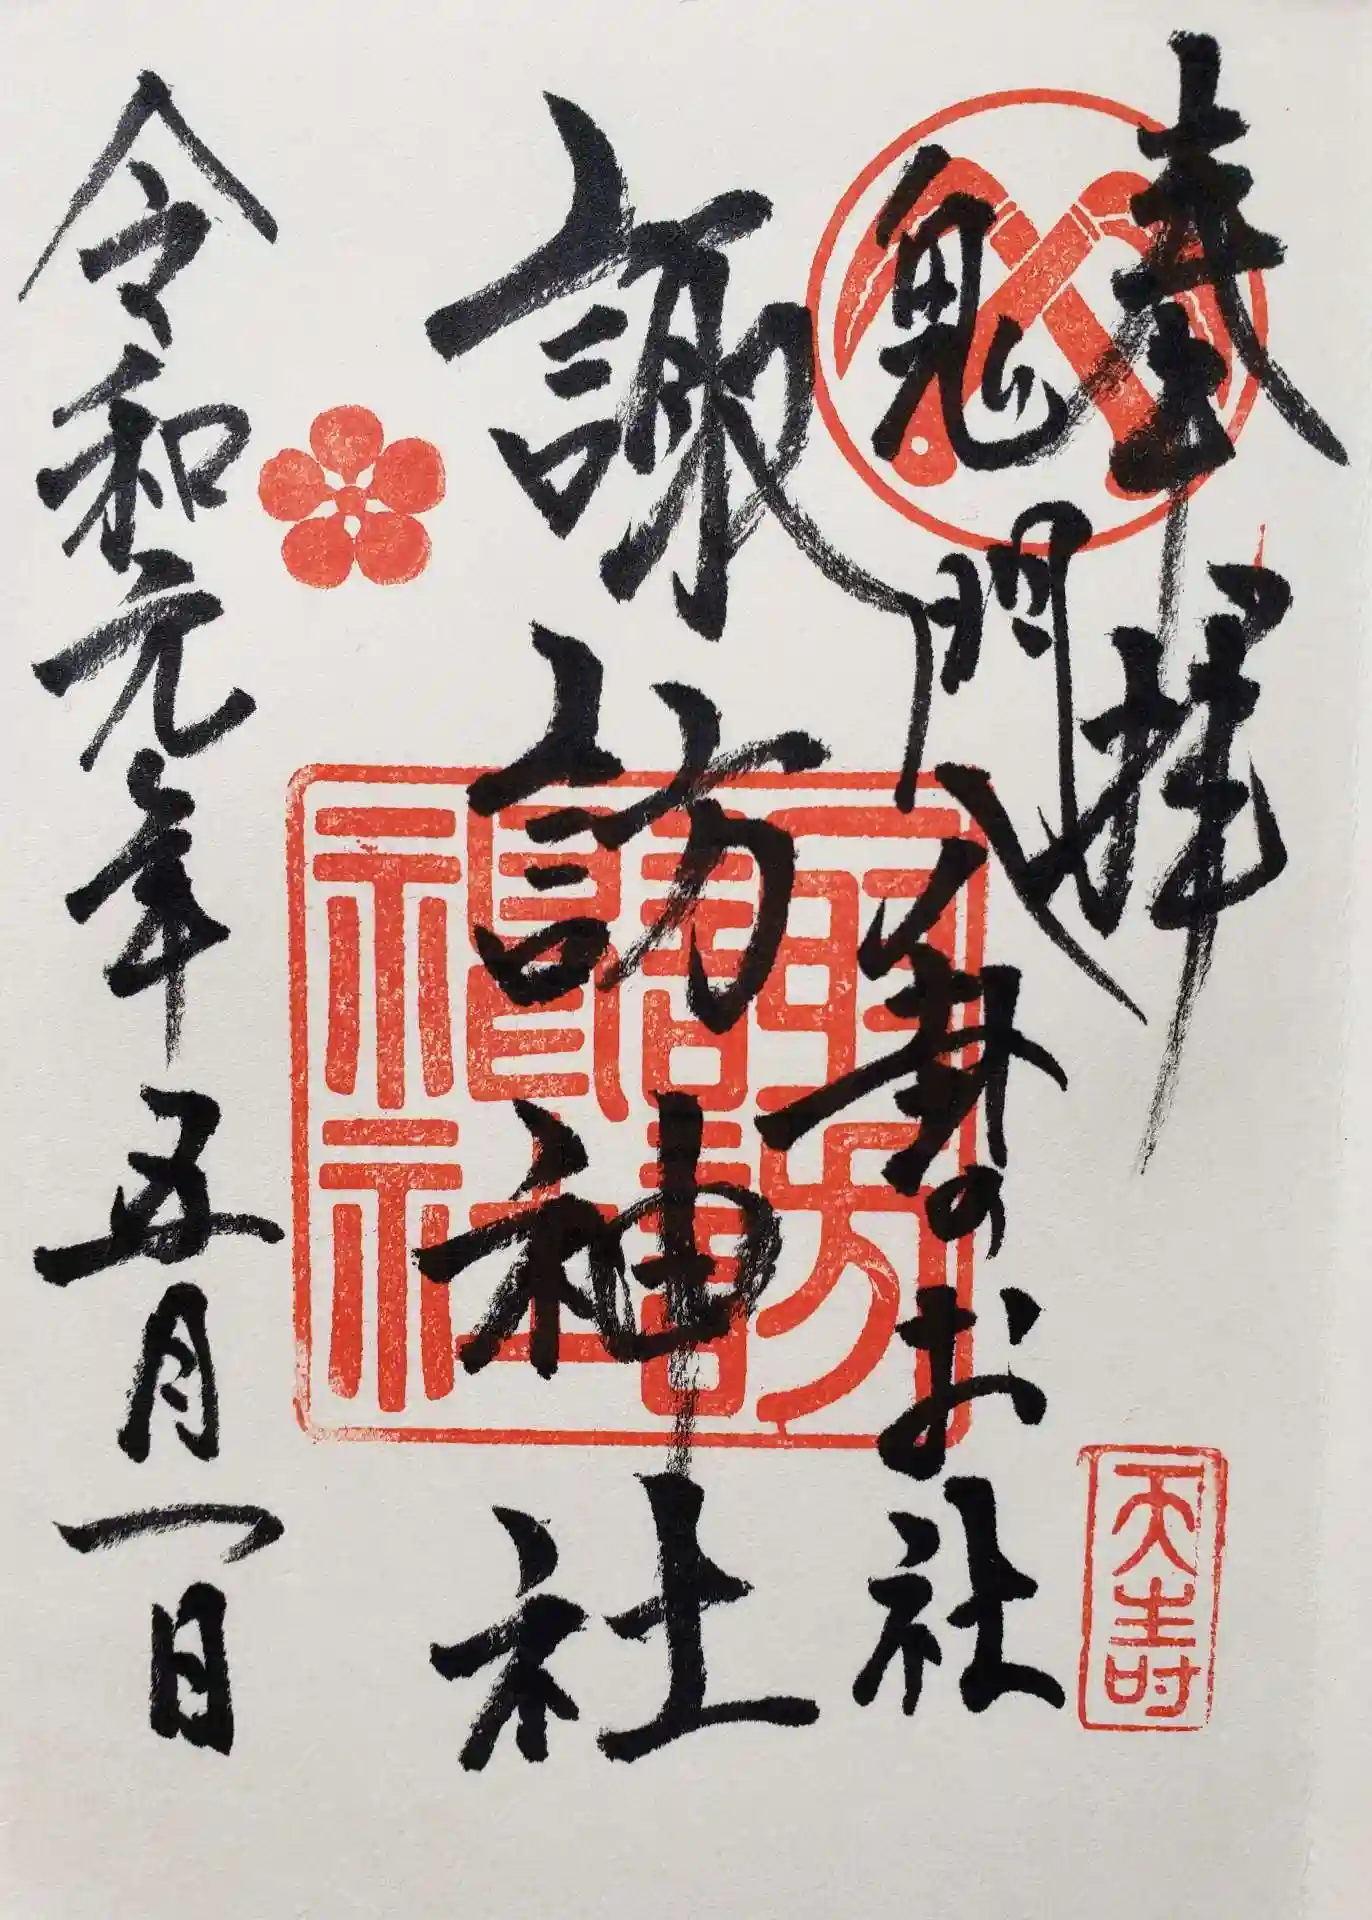 奉拝
鬼門
のお社
諏訪神社
令和元年五月一日
諏訪
神社
天壽